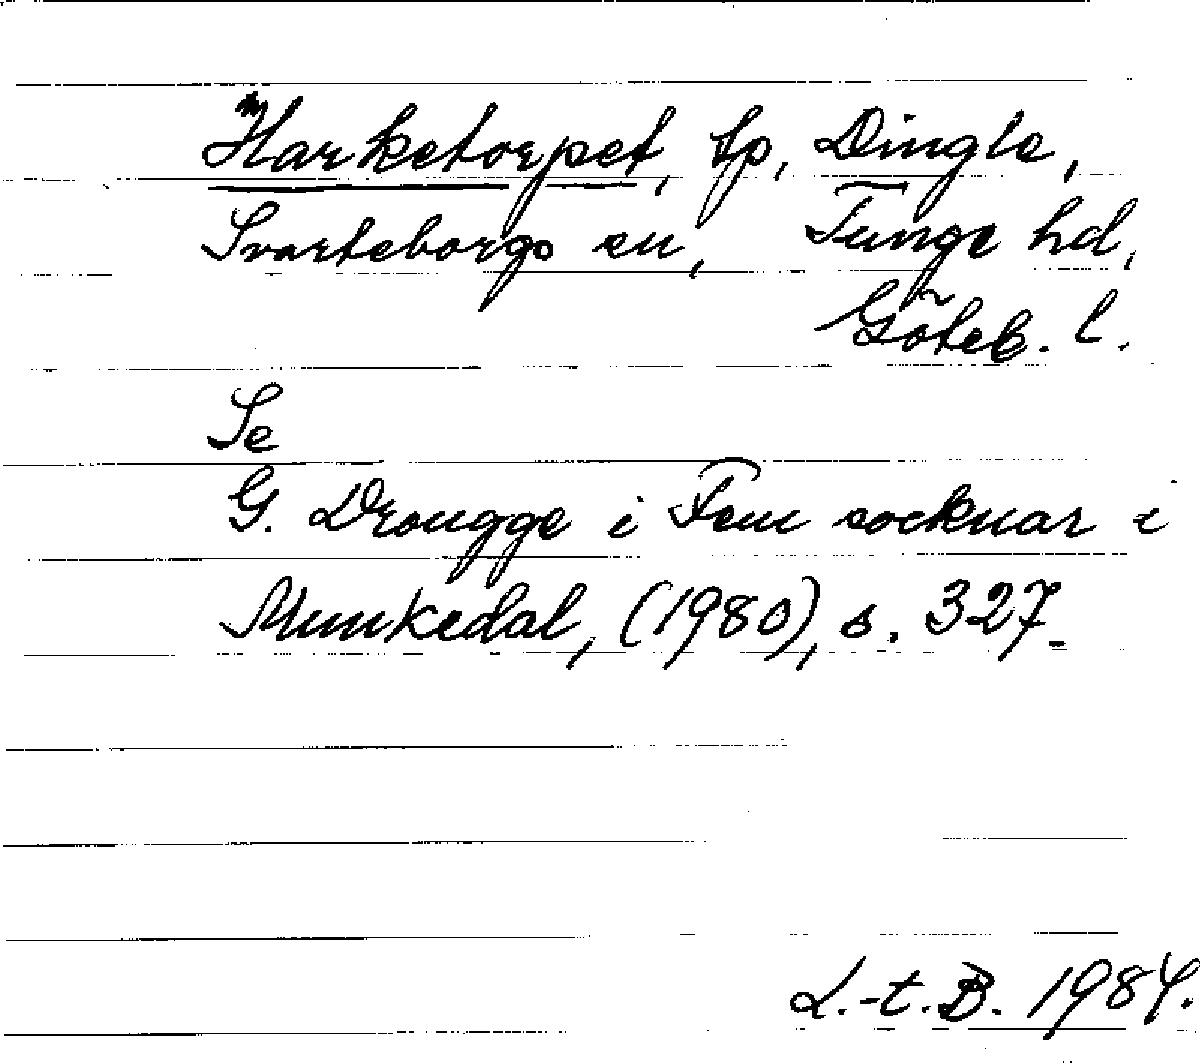 Harketorpet, tp, Dingle,
Svarteborgs sn, Tunge hd,
Göteb. l.
Se
G. Drougge i Fem socknar i
Munkedal, (1980), s. 327.
L.-t. B. 1984.